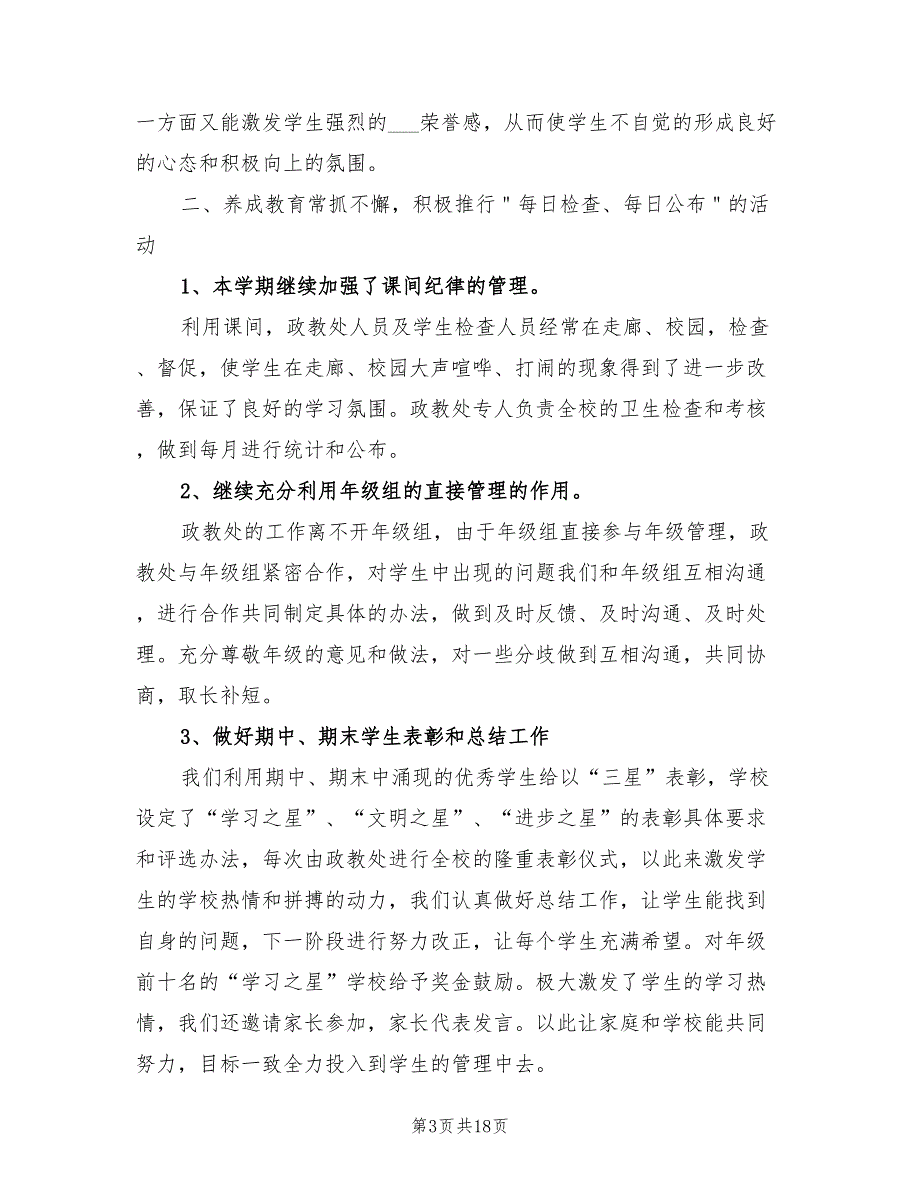 一方面又能激发学生强烈的___荣誉感，从而使学生不自觉的形成良好
的心态和积极向上的氛围。
二、养成教育常抓不懈，积极推行＂每日检查、每日公布＂的活
动
1、本学期继续加强了课间纪律的管理。
利用课间，政教处人员及学生检查人员经常在走廊、校园，检查
、督促，使学生在走廊、校园大声喧哗、打闹的现象得到了进一步改
善，保证了良好的学习氛围。政教处专人负责全校的卫生检查和考核
，做到每月进行统计和公布。
2、继续充分利用年级组的直接管理的作用。
政教处的工作离不开年级组，由于年级组直接参与年级管理，政
教处与年级组紧密合作，对学生中出现的问题我们和年级组互相沟通
，进行合作共同制定具体的办法，做到及时反馈、及时沟通、及时处
理。充分尊敬年级的意见和做法，对一些分歧做到互相沟通，共同协
商，取长补短。
3、做好期中、期末学生表彰和总结工作
我们利用期中、期末中涌现的优秀学生给以“三星”表彰，学校
设定了“学习之星”、“文明之星”、“进步之星”的表彰具体要求
和评选办法，每次由政教处进行全校的隆重表彰仪式，以此来激发学
生的学校热情和拼搏的动力，我们认真做好总结工作，让学生能找到
自身的问题，下一阶段进行努力改正，让每个学生充满希望。对年级
前十名的“学习之星”学校给予奖金鼓励。极大激发了学生的学习热
情，我们还邀请家长参加，家长代表发言。以此让家庭和学校能共同
努力，目标一致全力投入到学生的管理中去。
第3页共18页